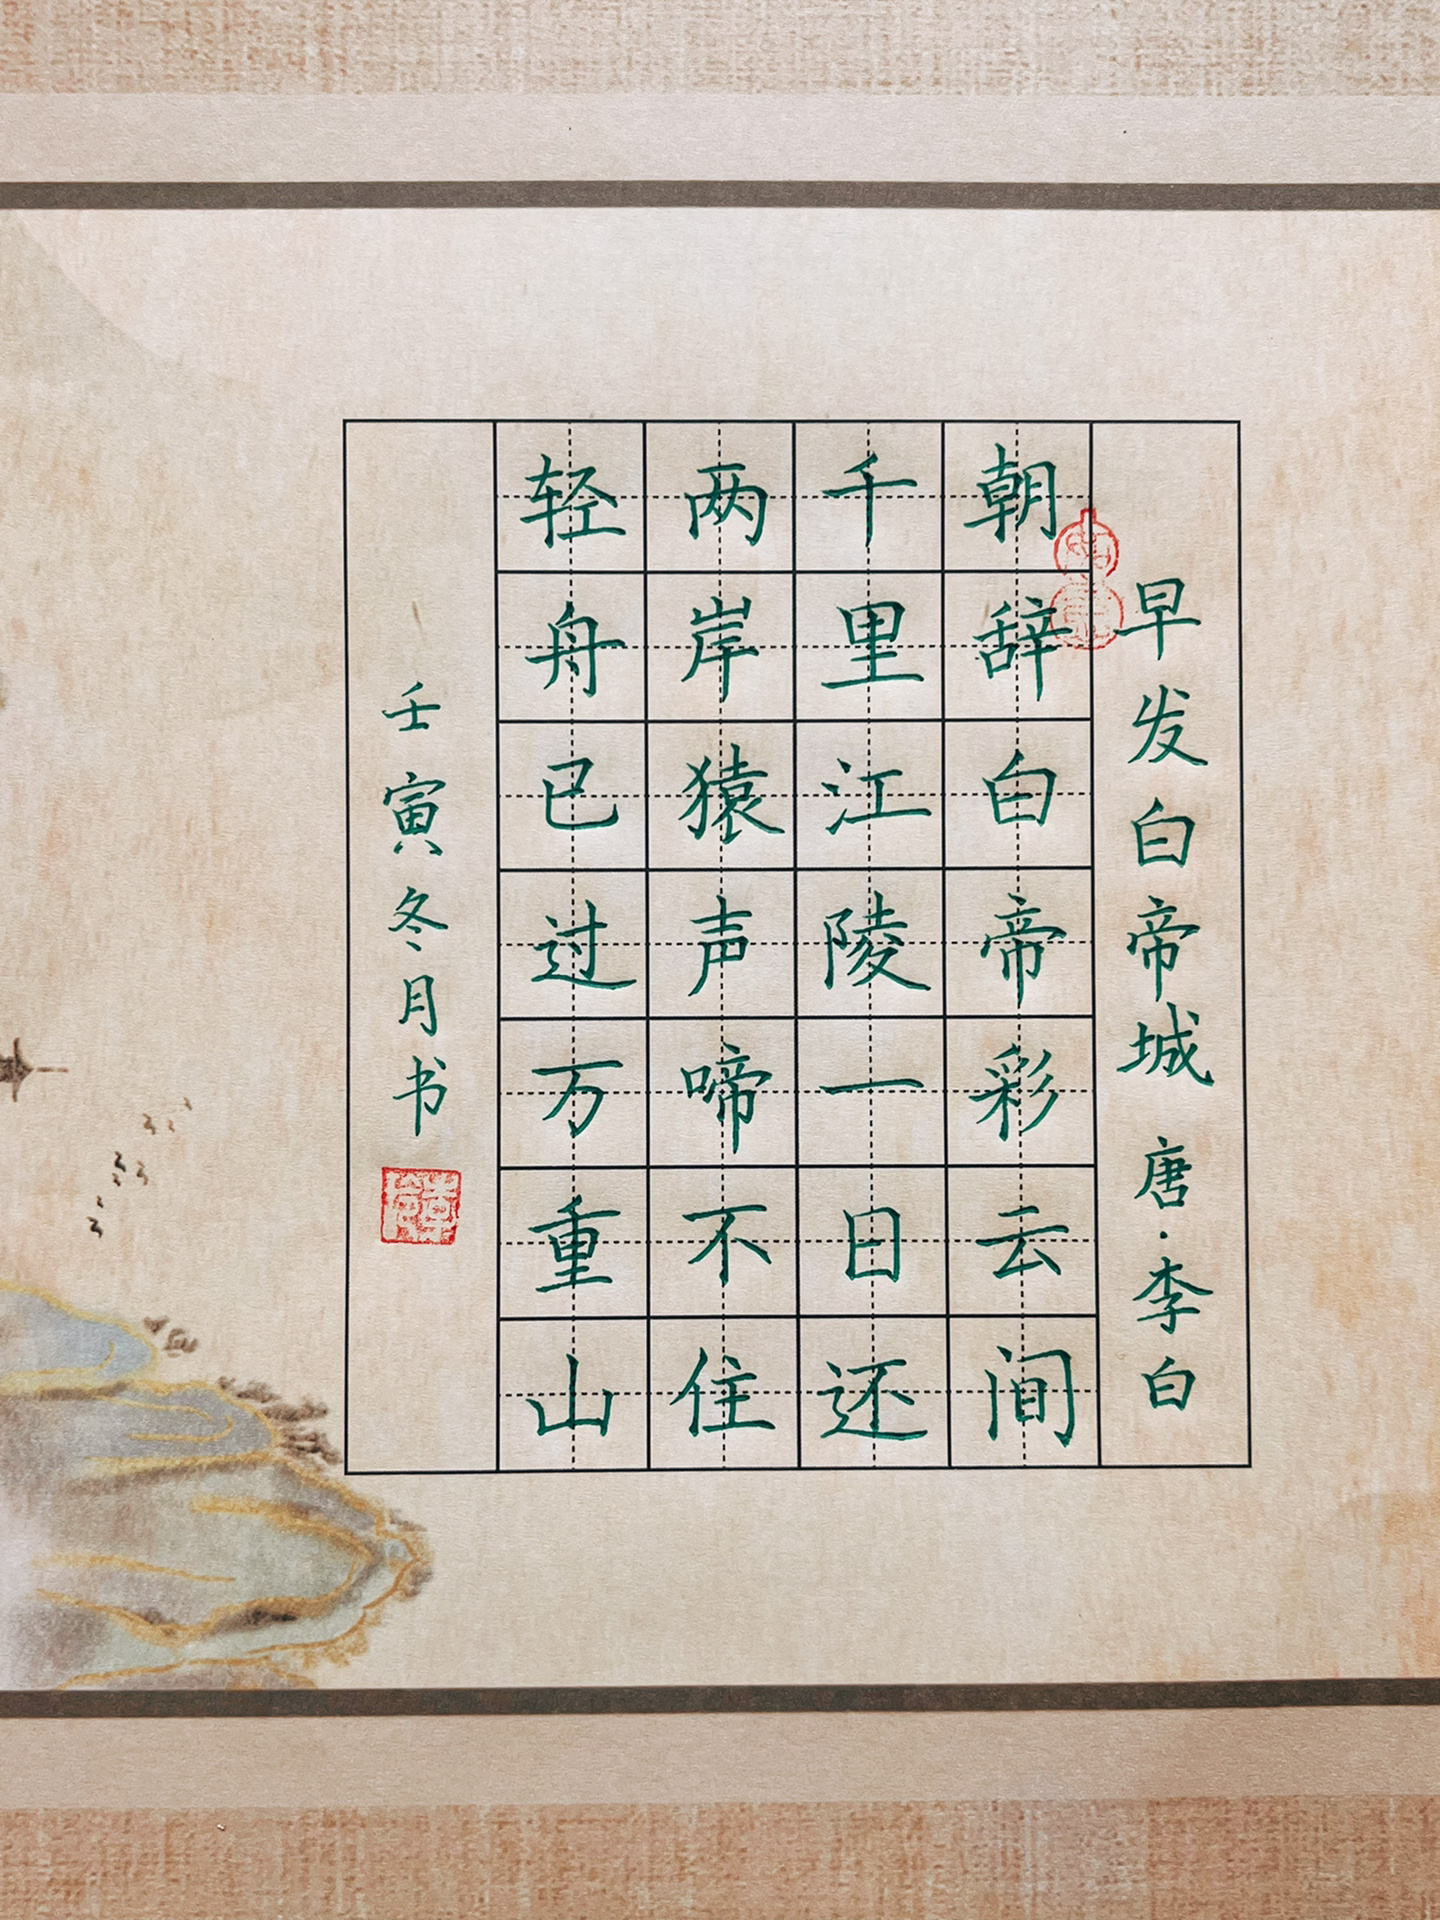 早发白帝城 唐·李白
朝辞白帝彩云间
千里江陵一日还
两岸猿声啼不住
轻舟已过万重山
壬寅冬月书